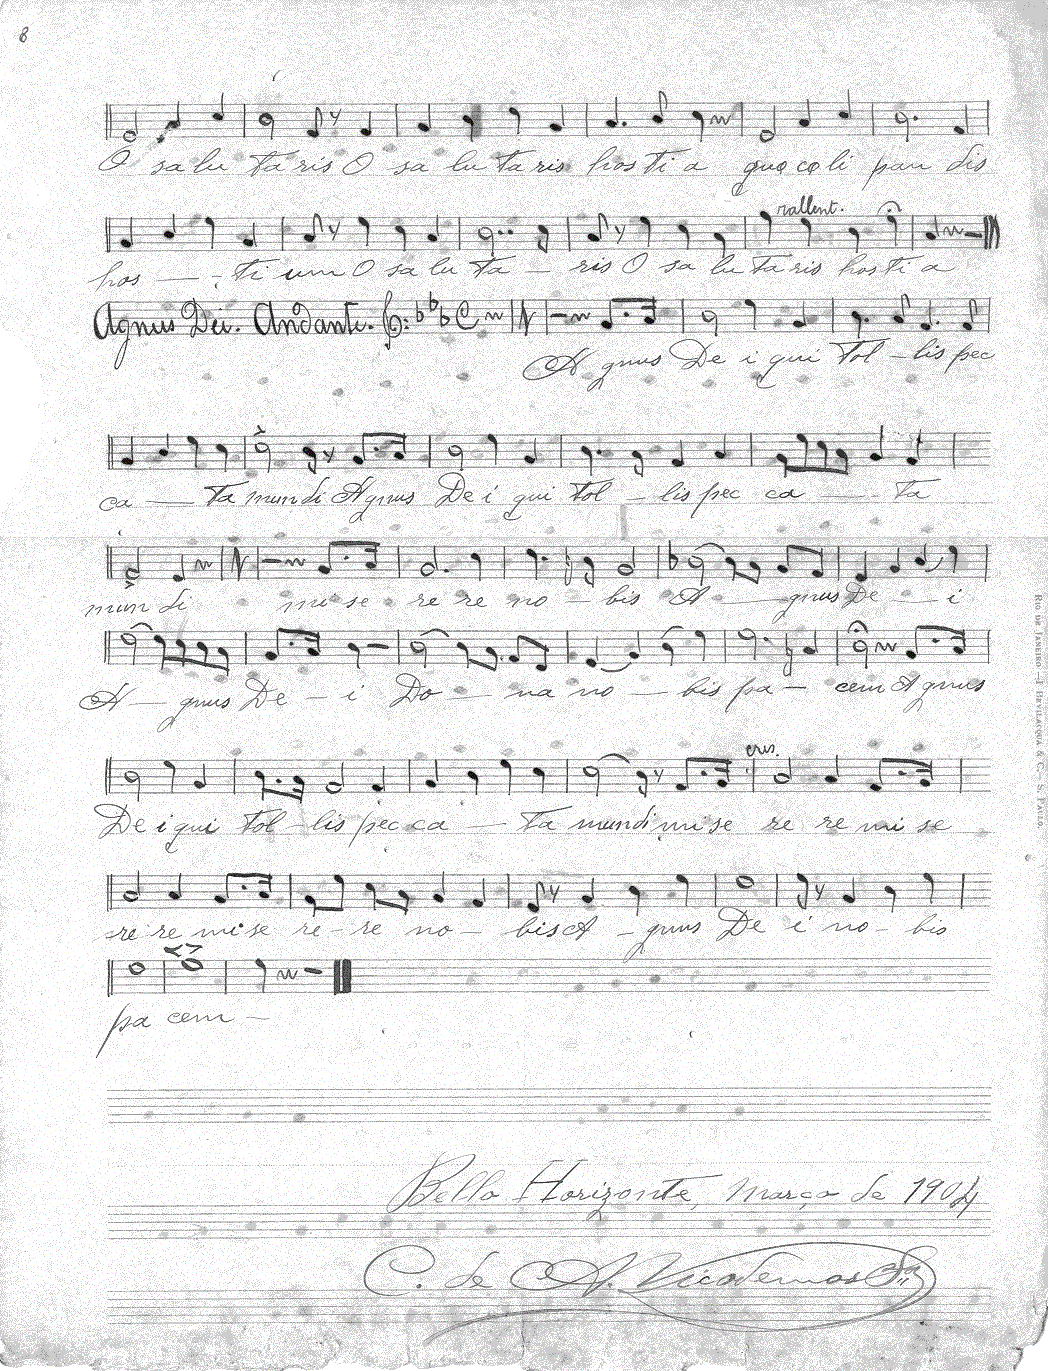 8
O salu ta ris O sa lu ta ris hos ti a quo cœ li pan dis
rallent.
hos - ti um O sa lu ta - ris O sa lu ta ris hos ti a
Agnus Dei. Andante.
A gnus De i qui tol - lis pec
ca - ta mun di Agnus De i qui tol - lis pec ca - - ta
mun di mi - se re re no - bis A - gnus De - i
A - gnus De - i Do - na no - bis pa - cem Agnus
cres.
De i qui tol - lis pec ca - ta mundi mi se re re mi se
re re mi se re - re no - bis A - gnus De i no - bis
pa cem -
Bello Horizonte, Março de 1904
C. de A. Nicodemos
RIO DE JANEIRO - I. BEVILACQUA & C. - S. PAULO.